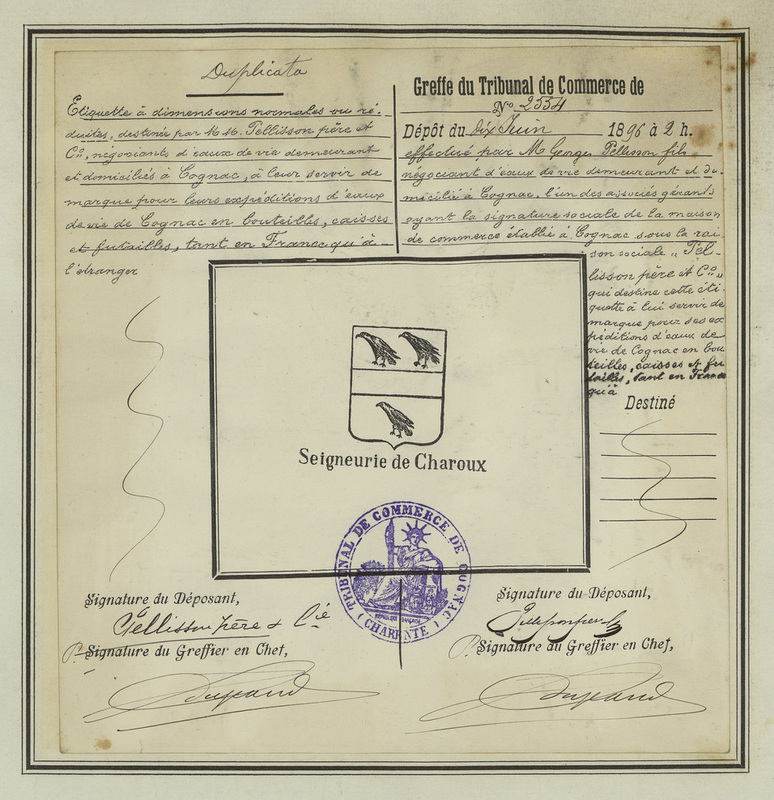 Duplicata
Etiquette à dimensions normales ou ré-
duites, destinée par M.M. Pellisson père et
Cie, négociants d'eaux de vie demeurant
et domiciliés à Cognac, à leur servir de
marque pour leurs expéditions d'eaux
de vie de Cognac en bouteilles, caisses
et futailles, tant en France qu'à
l'étranger
Greffe du Tribunal de Commerce de
No 2554
Dépôt du dix Juin 1896 à 2 h.
effectué par M George Pellisson fils
négociant d'eaux de vie demeurant et do-
micilié à Cognac, l'un des associés gérants
ayant la signature sociale de la maison
de commerce établie à Cognac sous la rai-
son sociale „ Pel-
lisson père et Co „
qui destine cette éti-
quette à lui servir de
marque pour ses ex
péditions d'eaux de
vie de Cognac en bou
teilles, caisses et fu
tailles, tant en France
qu'à
Destiné
Seigneurie de Charoux
TRIBUNAL DE COMMERCE DE COGNAC
( CHARENTE )
Signature du Déposant,
Pellisson père & Cie
Pr Signature du Greffier en Chef,
Signature du Déposant,
Pr Signature du Greffier en Chef,